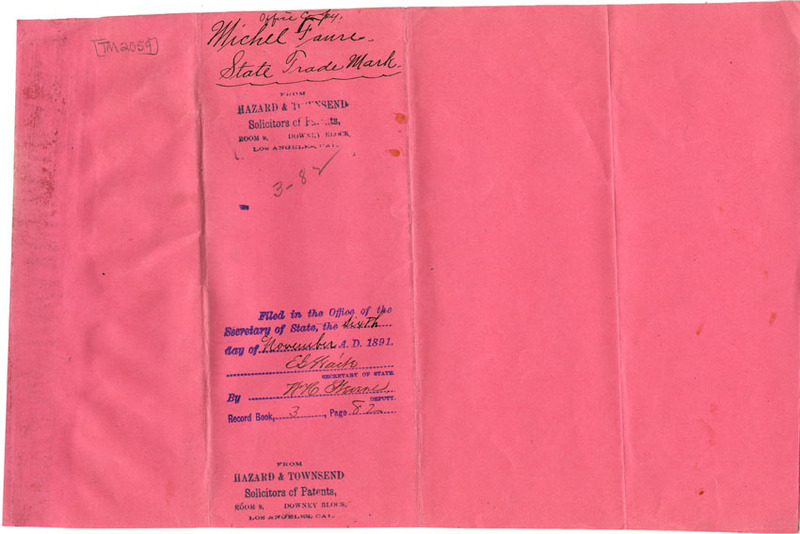 [TM2059]
Office Copy.
Michel Faure.
State Trade Mark.
FROM
HAZARD & TOWNSEND
Solicitors of Patents,
ROOM 9, DOWNEY BLOCK,
LOS ANGELES, CAL.
3-82
Filed in the Office of the
Secretary of State, the sixth
day of November A. D. 1891.
E G Waite
SECRETARY OF STATE.
By W H
DEPUTY.
Record Book, 3, Page 82
FROM
HAZARD & TOWNSEND
Solicitors of Patents,
ROOM 9, DOWNEY BLOCK,
LOS ANGELES, CAL.